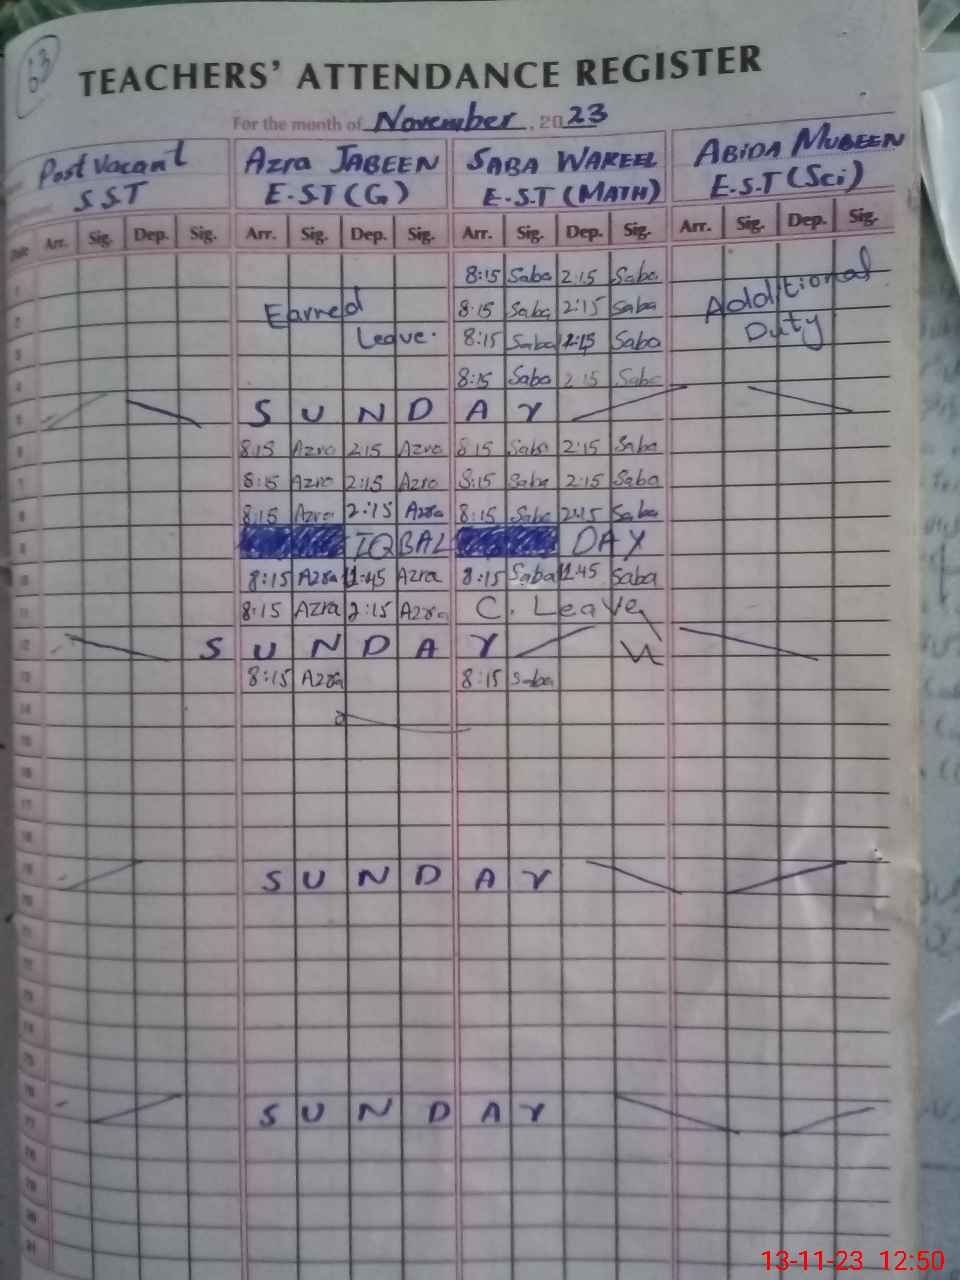 63
TEACHERS' ATTENDANCE REGISTER
For the month of November, 2023
Post Vacant Azra JABEEN SABA WAKEEL ABIDA MUBEEN
SST E-ST(G) E-S.T (MATH) E.S.T (Sci)
Date Arr. Sig. Dep. Sig. Arr. Sig. Dep. Sig. Arr. Sig. Dep. Sig. Arr. Sig. Dep. Sig.
1 8:15 Saba 2:15 Saba Additional
2 Earned 8:15 Saba 2:15 Saba Duty
3 Leave. 8:15 Saba 2:15 Saba
4 8:15 Saba 2:15 Saba
5 SUNDAY
6 8:15 Azra 2:15 Azra 8:15 Saba 2:15 Saba
7 8:15 Azra 2:15 Azra 8:15 Saba 2:15 Saba
8 8:15 Azra 2:15 Azra 8:15 Saba 2:15 Saba
9 IQBAL DAY
10 8:15 Azra 11:45 Azra 8:15 Saba 11:45 Saba
11 8:15 Azra 2:15 Azra C. Leave
12 SUNDAY
13 8:15 Azra 8:15 Saba
14
15
16
17
18
19 SUNDAY
20
21
22
23
24
25
26 SUNDAY
27
28
29
30
31
13-11-23 12:50